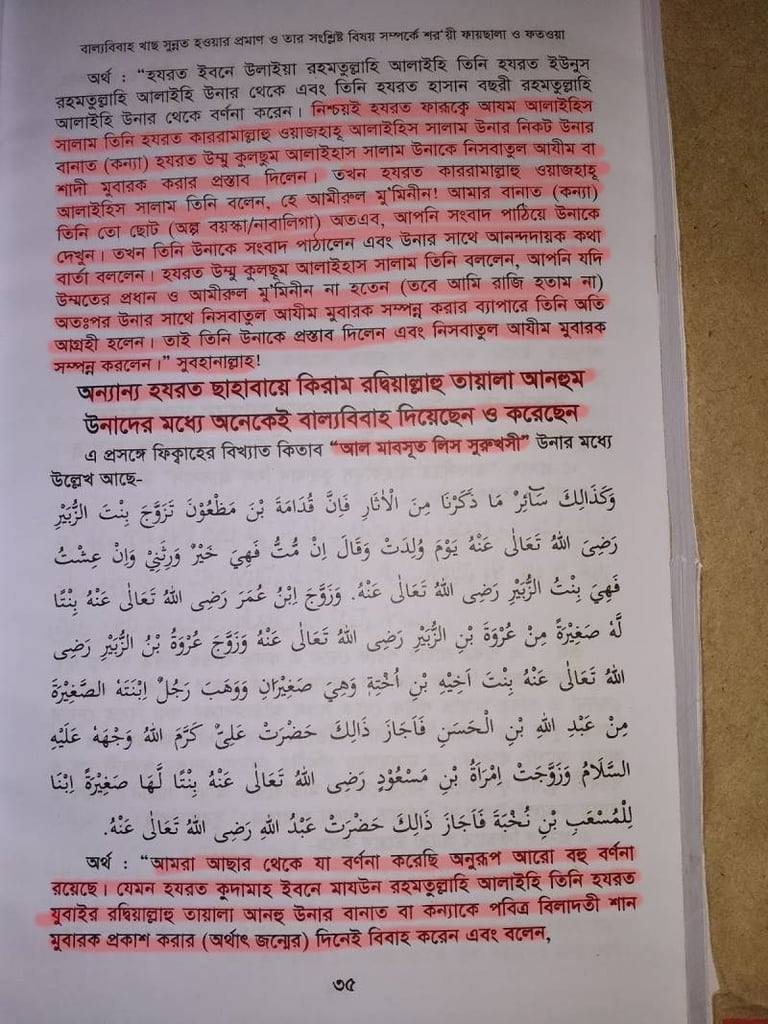 বাল্যবিবাহ খাছ সুন্নত হওয়ার প্রমাণ ও তার সংশ্লিষ্ট বিষয় সম্পর্কে শর'য়ী ফায়ছালা ও ফতওয়া
অর্থ : “হযরত ইবনে উলাইয়া রহমতুল্লাহি আলাইহি তিনি হযরত ইউনুস
রহমতুল্লাহি আলাইহি উনার থেকে এবং তিনি হযরত হাসান বছরী রহমতুল্লাহি
আলাইহি উনার থেকে বর্ণনা করেন। নিশ্চয়ই হযরত ফারূক্বে আযম আলাইহিস
সালাম তিনি হযরত কাররামাল্লাহু ওয়াজহাহূ আলাইহিস সালাম উনার নিকট উনার
বানাত (কন্যা) হযরত উম্মু কুলছুম আলাইহাস সালাম উনাকে নিসবাতুল আযীম বা
শাদী মুবারক করার প্রস্তাব দিলেন। তখন হযরত কাররামাল্লাহু ওয়াজহাহূ
আলাইহিস সালাম তিনি বলেন, হে আমীরুল মু'মিনীন! আমার বানাত (কন্যা)
তিনি তো ছোট (অল্প বয়স্কা/নাবালিগা) অতএব, আপনি সংবাদ পাঠিয়ে উনাকে
দেখুন। তখন তিনি উনাকে সংবাদ পাঠালেন এবং উনার সাথে আনন্দদায়ক কথা
বার্তা বললেন। হযরত উম্মু কুলছূম আলাইহাস সালাম তিনি বললেন, আপনি যদি
উম্মতের প্রধান ও আমীরুল মু'মিনীন না হতেন (তবে আমি রাজি হতাম না)
অতঃপর উনার সাথে নিসবাতুল আযীম মুবারক সম্পন্ন করার ব্যাপারে তিনি অতি
আগ্রহী হলেন। তাই তিনি উনাকে প্রস্তাব দিলেন এবং নিসবাতুল আযীম মুবারক
সম্পন্ন করলেন।” সুবহানাল্লাহ!
অন্যান্য হযরত ছাহাবায়ে কিরাম রদ্বিয়াল্লাহু তায়ালা আনহুম
উনাদের মধ্যে অনেকেই বাল্যবিবাহ দিয়েছেন ও করেছেন
এ প্রসঙ্গে ফিক্বাহের বিখ্যাত কিতাব “আল মাবসূত লিস সুরুখসী” উনার মধ্যে
উল্লেখ আছে-
وَكَذَالِكَ سَآئِرُ مَا ذَكَرْنَا مِنَ الْاٰثَارِ فَاِنَّ قُدَامَةَ بْنَ مَظْعُوْنَ تَزَوَّجَ بِنْتَ الزُّبَيْرِ
رَضِىَ اللهُ تَعَالٰى عَنْهُ يَوْمَ وُلِدَتْ وَقَالَ اِنْ مُّتُّ فَهِيَ خَيْرُ وَرَثَتِىْ وَاِنْ عِشْتُ
فَهِيَ بِنْتُ الزُّبَيْرِ رَضِى اللهُ تَعَالٰى عَنْهُ. وَزَوَّجَ اِبْنُ عُمَرَ رَضِى اللهُ تَعَالٰى عَنْهُ بِنْتًا
لَّهٗ صَغِيْرَةً مِنْ عُرْوَةَ بْنِ الزُّبَيْرِ رَضِى اللهُ تَعَالٰى عَنْهُ وَزَوَّجَ عُرْوَةُ بْنُ الزُّبَيْرِ رَضِى
اللهُ تَعَالٰى عَنْهُ بِنْتَ اَخِيْهِ بْنِ اُخْتِهٖ وَهِىَ صَغِيْرَانِ وَوَهَبَ رَجُلٌ اِبْنَتَهُ الصَّغِيْرَةَ
مِنْ عَبْدِ اللهِ بْنِ الْحَسَنِ فَاَجَازَ ذَالِكَ حَضْرَتْ عَلِىٌّ كَرَّمَ اللهُ وَجْهَهٗ عَلَيْهِ
السَّلَامُ وَزَوَّجَتْ اِمْرَأَةُ بْنِ مَسْعُوْدٍ رَضِى اللهُ تَعَالٰى عَنْهُ بِنْتًا لَّهَا صَغِيْرَةً اِبْنًا
لِلْمُسَيَّبِ بْنِ نُخْبَةَ فَاَجَازَ ذَالِكَ حَضْرَتْ عَبْدُ اللهِ رَضِى اللهُ تَعَالٰى عَنْهُ.
অর্থ : “আমরা আছার থেকে যা বর্ণনা করেছি অনুরূপ আরো বহু বর্ণনা
রয়েছে। যেমন হযরত কুদামাহ ইবনে মাযউন রহমতুল্লাহি আলাইহি তিনি হযরত
যুবাইর রদ্বিয়াল্লাহু তায়ালা আনহু উনার বানাত বা কন্যাকে পবিত্র বিলাদতী শান
মুবারক প্রকাশ করার (অর্থাৎ জন্মের) দিনেই বিবাহ করেন এবং বলেন,
৩৫